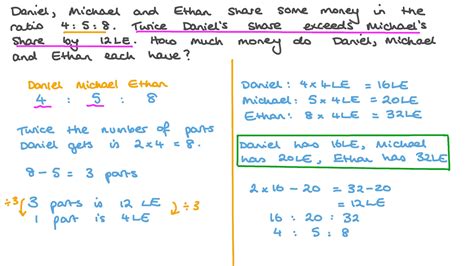 Daniel, Michael and Ethan share some money in the
ratio 4:5:8. Twice Daniel's share exceeds Michael's
share by 12LE. How much money do Daniel, Michael
and Ethan each have?
Daniel Michael Ethan
4 : 5 : 8
Twice the number of parts
Daniel gets is 2×4 = 8.
8 - 5 = 3 parts
÷3 3 parts is 12 LE ÷3
1 part is 4LE
Daniel: 4×4LE = 16LE
Michael: 5×4LE = 20LE
Ethan: 8×4LE = 32LE
Daniel has 16LE, Michael
has 20LE, Ethan has 32LE
2×16 - 20 = 32-20
= 12LE
16 : 20 : 32
4 : 5 : 8